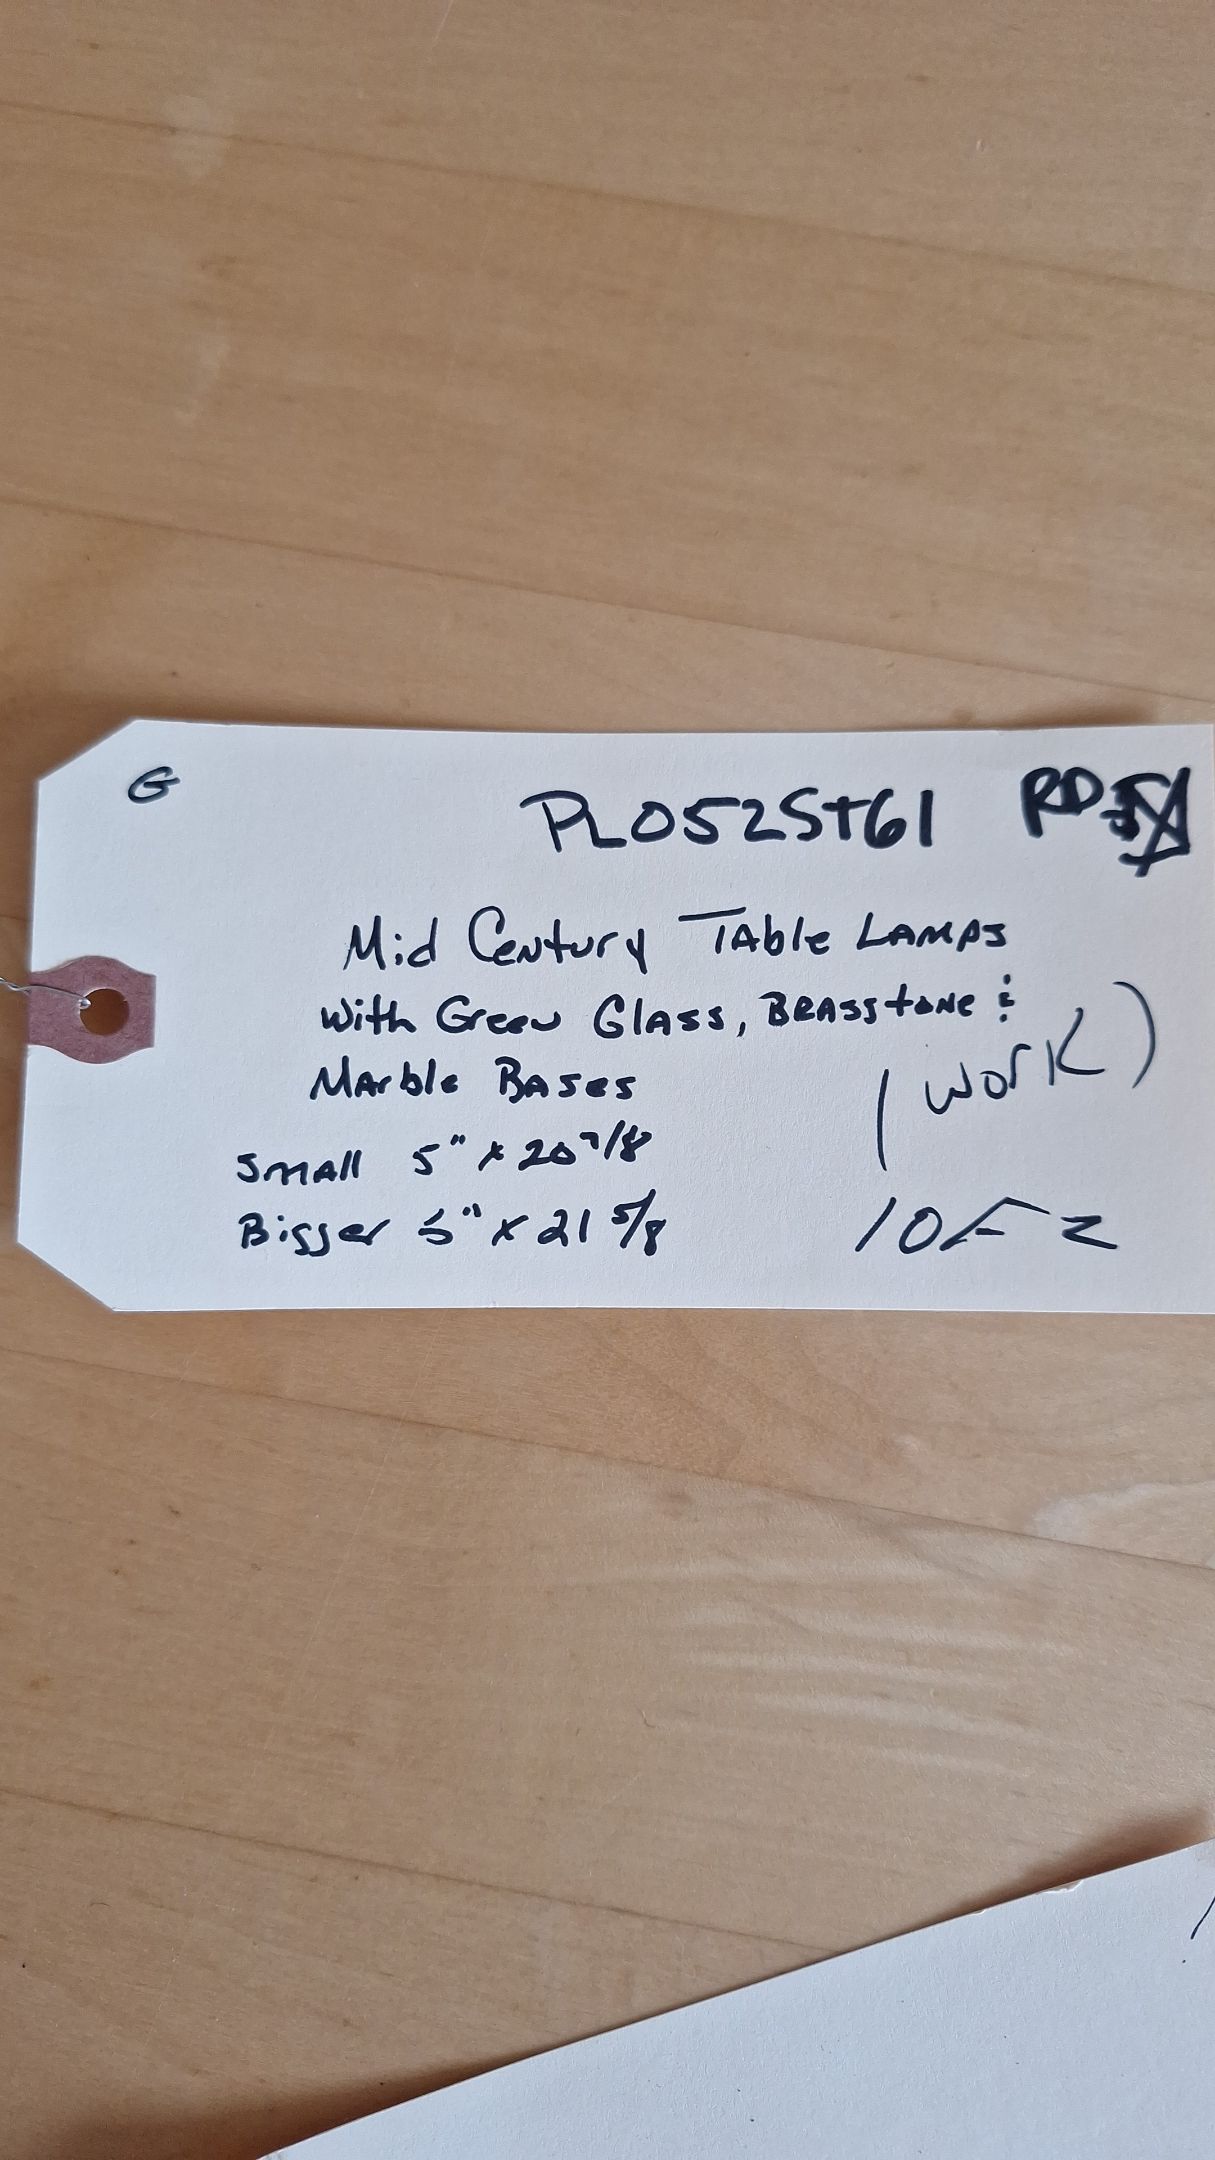 G
PL052ST61 RD
Mid Century Table Lamps
With Green Glass, Brasstone &
Marble Bases
(Work)
Small 5" x 20 7/8
Bigger 5" x 21 5/8
1 OF 2